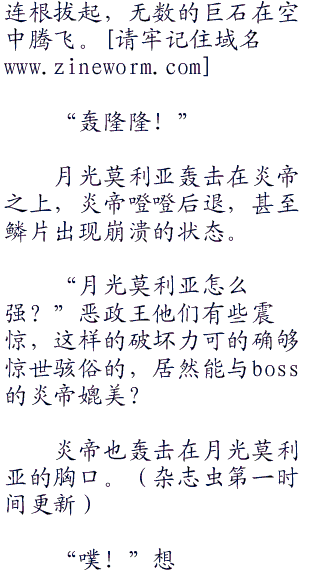 连根拔起，无数的巨石在空
中腾飞。[请牢记住域名
www.zineworm.com]
“轰隆隆！”
月光莫利亚轰击在炎帝
之上，炎帝噔噔后退，甚至
鳞片出现崩溃的状态。
“月光莫利亚怎么
强？”恶政王他们有些震
惊，这样的破坏力可的确够
惊世骇俗的，居然能与boss
的炎帝媲美？
炎帝也轰击在月光莫利
亚的胸口。（杂志虫第一时
间更新）
“噗！”想